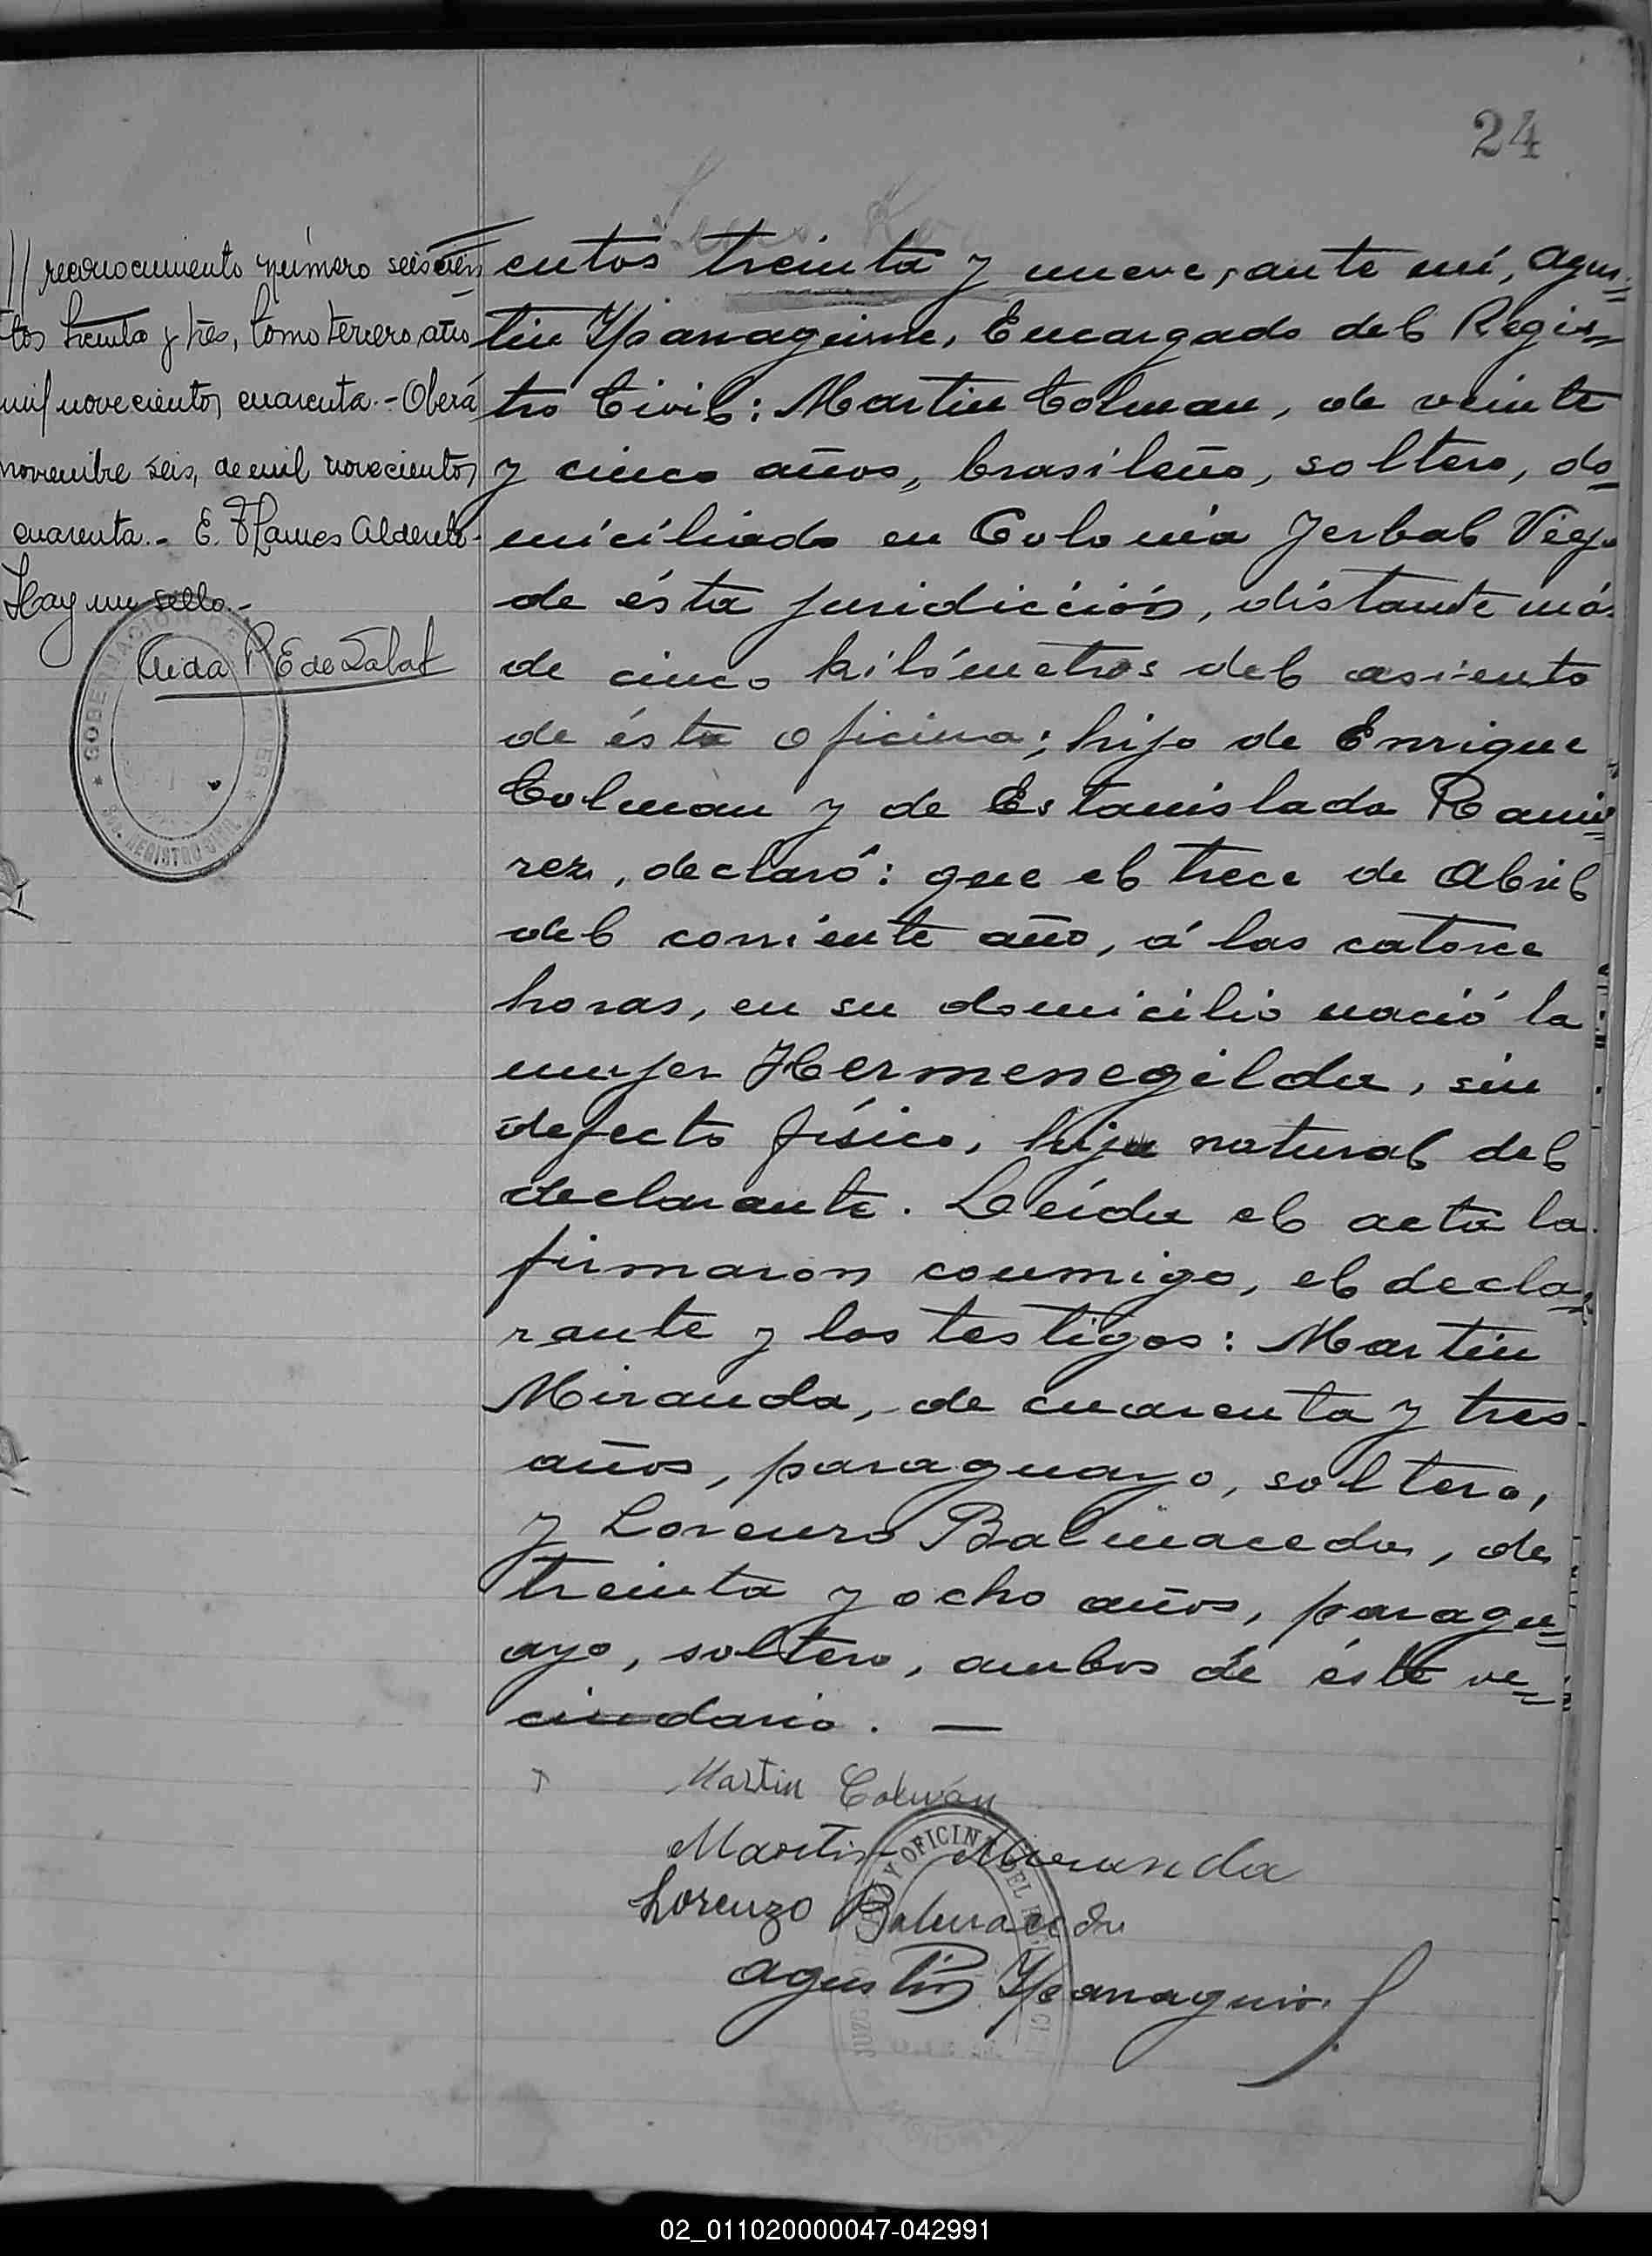 24
// reconocimiento número seiscien
tos treinta y tres, tomo tercero, año
mil novecientos cuarenta.- Oberá
noviembre seis, de mil novecientos
cuarenta.- E.
Hay un sello.-
GOBERNACION DE
REGISTRO CIVIL
entos treinta y nueve, ante mí, Agus=
tin Yparraguirre, Encargado del Regis=
tro Civil: Martin Colman, de veinte
y cinco años, brasileño, soltero, do=
miciliado en Colonia Yerbal Viejo
de ésta juridicción, distante más
de cinco kilómetros del asiento
de ésta oficina; hijo de Enrique
Colman y de Estanislada Rami=
rez, declaró: que el trece de Abril
del corriente año, á las catorce
horas, en su domicilio nació la
mujer Hermenegilda, sin
defecto físico, hija natural del
declarante. Leída el acta la
firmaron conmigo, el decla=
rante y los testigos: Martin
Miranda, de cuarenta y tres
años, paraguayo, soltero,
y Lorenzo Balmaceda, de
treinta y ocho años, paragu=
ayo, soltero, ambos de éste ve=
cindario. —
Martin Colmán
Martin Miranda
Lorenzo Balmaceda
Agustin Yparraguirre
Y OFICINA DEL
02_011020000047-042991